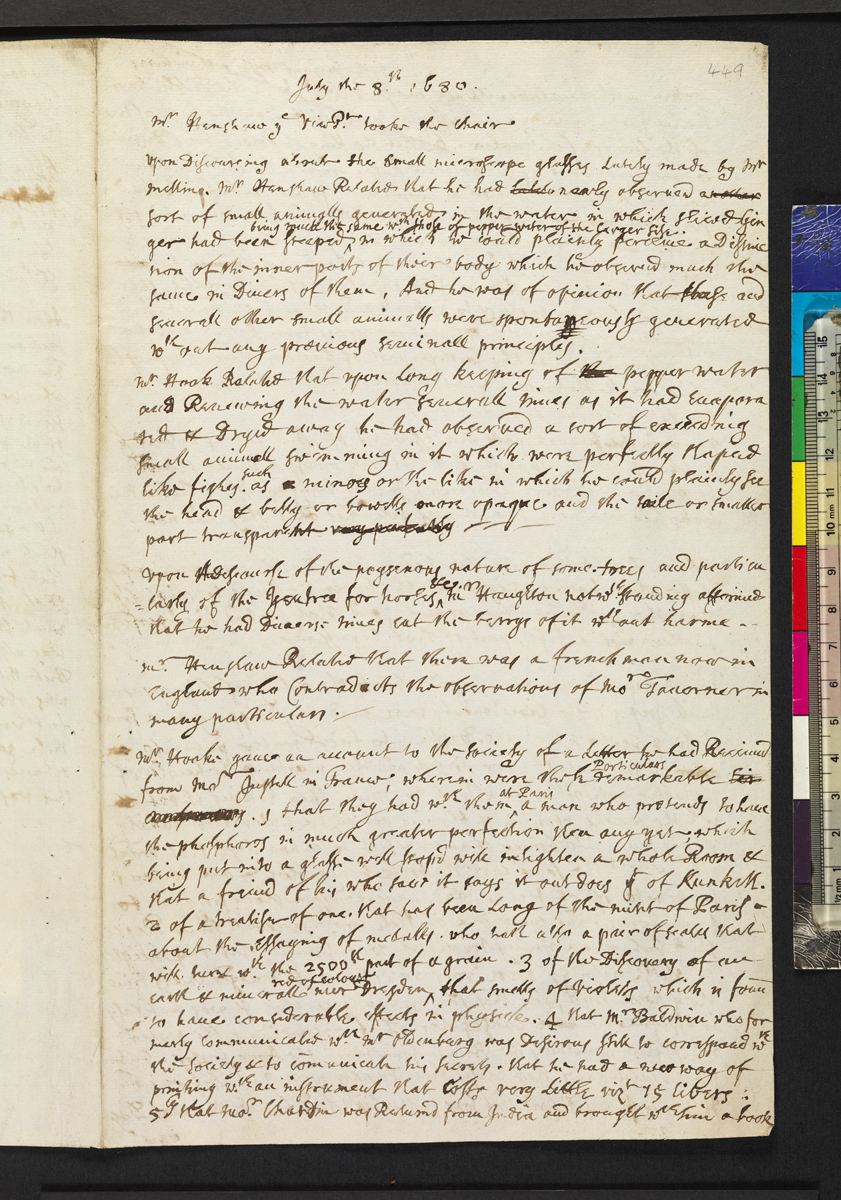 449
July the 8.th 1680.
Mr. Henshaw ye Vice Pt. tooke the Chair
Upon Discoursing about the small microscope glasses Lately made by Mr
melling. Mr Henshaw Related that he had newly observed another
sort of small animalls generated in the water in which sliced Gin
being much the same wth those of pepper water of the Larger Size.
ger had been steeped, in which he could plainly perceive a Distinc
tion of the inner parts of their body which he observed much the
same in Divers of them, And he was of opinion that these and
severall other small animalls were spontaneously generated
wth out any previous seminall principles.
mr. Hook Related that upon Long keeping of the pepper water
and Renewing the water severall times as it had Evapora
ted & Dryed away he had observed a sort of exceeding
small animall swimming in it which were perfectly shaped
like fishes. such as minows or the like in which he could plainly see
the head & belly or bowells more opaque and the taile or smaller
part transparent
Upon discourse of the poysenous nature of some trees and particu
larly of the Yew tree for horses &c. mr Haughton notwthstanding affirmed
that he had Diverse times eat the berrys of it wthout harme.
mr. Henshaw Related that there was a frenchman now in
England who Contradicts the observations of Mor Tavernier in
many particulars.
Mr. Hooke gave an account to the society of a Letter he had Received
from Mor Justell in France, wherein were these Remarkable Particulars
. 1 that they had wth them at Paris a man who pretends to have
the phosphoros in much greater perfection then any yet which
being put into a glasse well stopd will inlighten a whole Room &
that a freind of his who saw it says it outdoes yt of Kunkell.
2 of a treatise of one that has been Long of the mint of Paris
about the Essaying of medalls. who hath also a pair of scales that
will turn wth the 2500th part of a grain. 3 of the Discovery of an
earth & minerall red of colour neer Dresden, that smells of violets which is foun
to have considerable effects in physick. 4 that Mr. Baldwin who for
merly communicated wth mr Oldenburg was Desirous still to correspond wth
the society & to comunicate his secrets. that he had a new way of
printing wth an instrument that Costs very Little vizt 15 livers:
5ly that mor. Chardin was Returnd from India and brought wth him a book